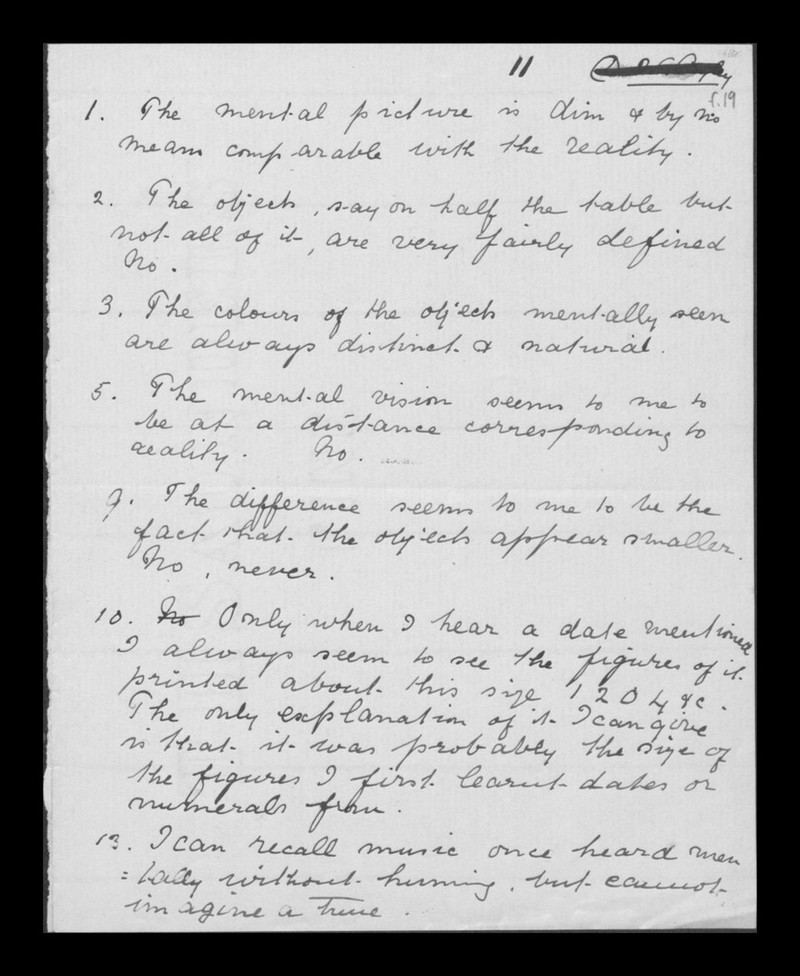 11
f.19
1. The mental picture is dim & by no
means comparable with the reality.
2. The objects, say on half the table but
not all of it, are very fairly defined
No.
3. The colours of the objects mentally seen
are always distinct & natural.
5. The mental vision seems to me to
be at a distance corresponding to
reality. No.
9. The difference seems to me to be the
fact that the objects appear smaller.
No, never.
10. No Only when I hear a date mentioned
I always seem to see the figures of it
printed about this size 1 2 0 4 &c.
The only explanation of it I can give
is that it was probably the size of
the figures I first learnt dates or
numerals from.
13. I can recall music once heard men
=tally without huming, but cannot
imagine a tune.